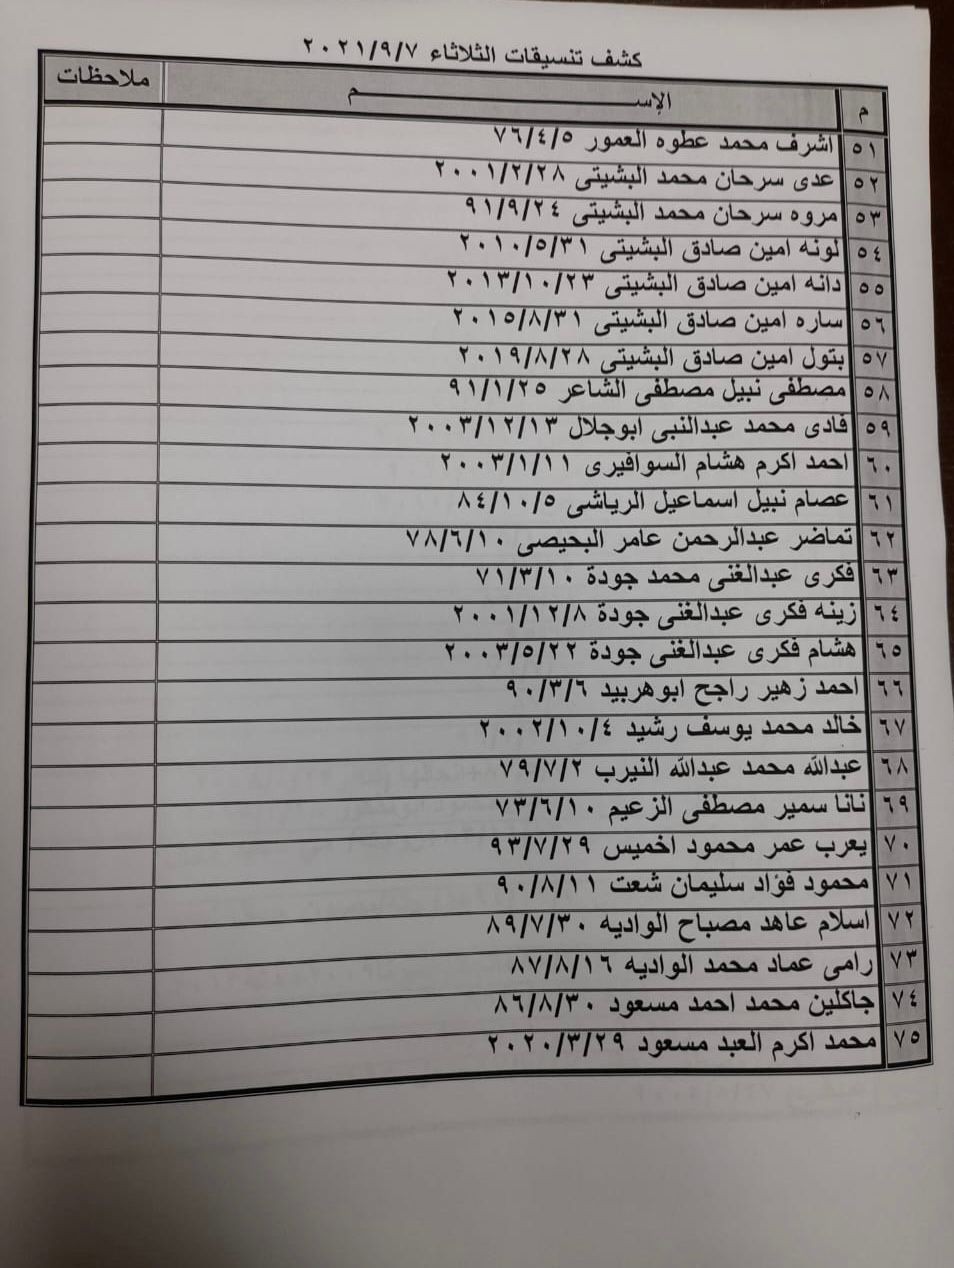 كشف تنسيقات الثلاثاء ٢٠٢١/٩/٧
م الإســـــــم ملاحظات
٥١ اشرف محمد عطوه العمور ٧٦/٤/٥
٥٢ عدى سرحان محمد البشيتى ٢٠٠١/٢/٢٨
٥٣ مروه سرحان محمد البشيتى ٩١/٩/٢٤
٥٤ لونه امين صادق البشيتى ٢٠١٠/٥/٣١
٥٥ دانه امين صادق البشيتى ٢٠١٣/١٠/٢٣
٥٦ ساره امين صادق البشيتى ٢٠١٥/٨/٣١
٥٧ بتول امين صادق البشيتى ٢٠١٩/٨/٢٨
٥٨ مصطفى نبيل مصطفى الشاعر ٩١/١/٢٥
٥٩ فادى محمد عبدالنبى ابوجلال ٢٠٠٣/١٢/١٣
٦٠ احمد اكرم هشام السوافيرى ٢٠٠٣/١/١١
٦١ عصام نبيل اسماعيل الرياشى ٨٤/١٠/٥
٦٢ تماضر عبدالرحمن عامر البحيصى ٧٨/٦/١٠
٦٣ فكرى عبدالغنى محمد جودة ٧١/٣/١٠
٦٤ زينه فكرى عبدالغنى جودة ٢٠٠١/١٢/٨
٦٥ هشام فكرى عبدالغنى جودة ٢٠٠٣/٥/٢٢
٦٦ احمد زهير راجح ابوهربيد ٩٠/٣/٦
٦٧ خالد محمد يوسف رشيد ٢٠٠٢/١٠/٤
٦٨ عبدالله محمد عبدالله النيرب ٧٩/٧/٢
٦٩ نانا سمير مصطفى الزعيم ٧٣/٦/١٠
٧٠ يعرب عمر محمود اخميس ٩٣/٧/٢٩
٧١ محمود فؤاد سليمان شعت ٩٠/٨/١١
٧٢ اسلام عاهد مصباح الواديه ٨٩/٧/٣٠
٧٣ رامى عماد محمد الواديه ٨٧/٨/١٦
٧٤ جاكلين محمد احمد مسعود ٨٦/٨/٣٠
٧٥ محمد اكرم العبد مسعود ٢٠٢٠/٣/٢٩